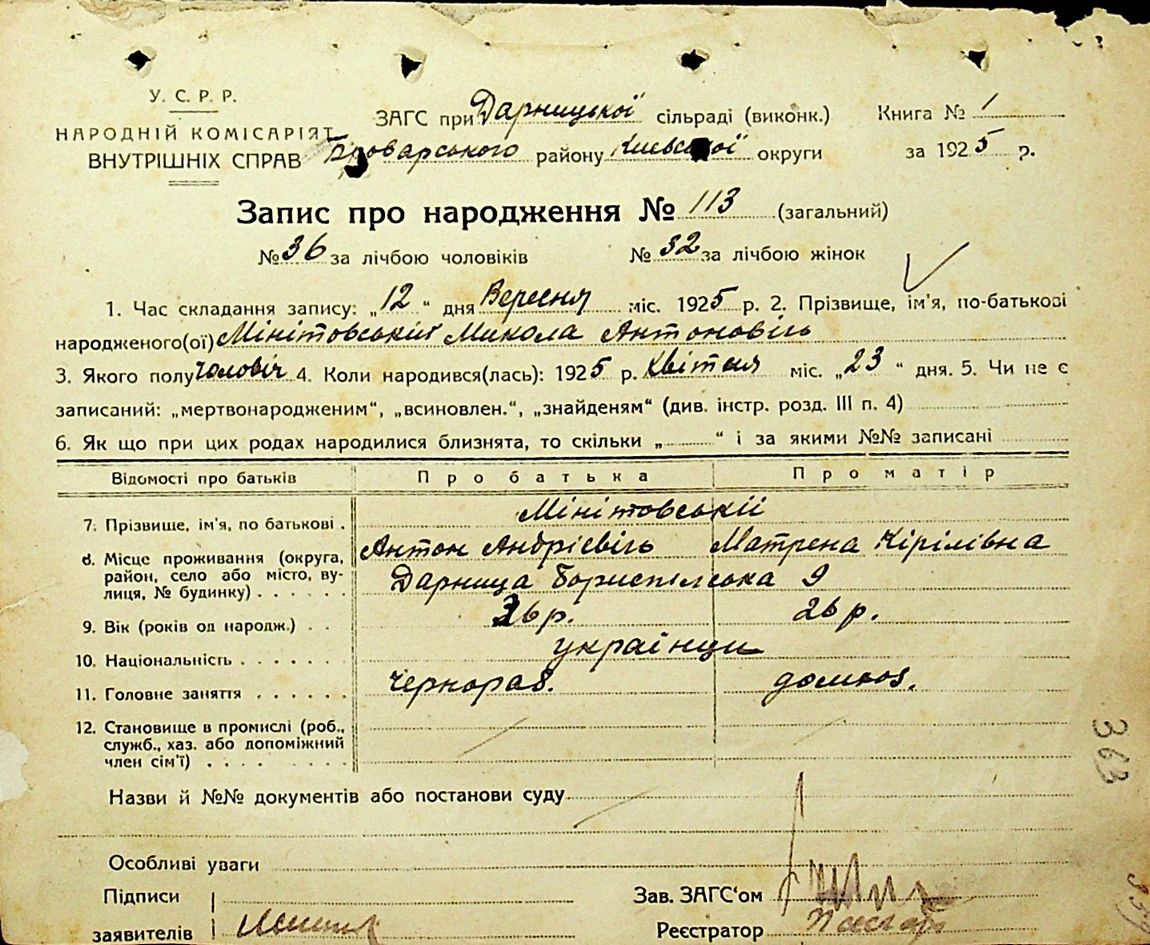 У. С. Р. Р.
НАРОДНІЙ КОМІСАРІЯТ
ВНУТРІШНІХ СПРАВ
ЗАГС при Дарницької сільраді (виконк.)
Броварського району Киевської округи
Книга № 1
за 1925 р.
Запис про народження № 113 (загальний)
№ 36 за лічбою чоловіків № 32 за лічбою жінок
1. Час складання запису: „12“ дня Вересня міс. 1925 р. 2. Прізвище, ім'я, по-батькові
народженого(ої) Мінітовський Микола Антоновічь
3. Якого полу чоловіч 4. Коли народився(лась): 1925 р. Квітня міс. „23“ дня. 5. Чи не є
записаний: „мертвонародженим“, „всиновлен.“, „знайденям“ (див. інстр. розд. III п. 4)
6. Як що при цих родах народилися близнята, то скільки „ “ і за якими №№ записані
Відомості про батьків Про батька Про матір
7. Прізвище, ім'я, по батькові . Мінітовській
Антон Андрієвічь Матрена Кірілівна
8. Місце проживання (округа,
район, село або місто, ву-
лиця, № будинку) . . . . . . Дарница Бориспілська 9
9. Вік (років од народж.) . . 36 р. 26 р.
10. Національність . . . . . . . українци
11. Головне заняття . . . . . . чернораб. домхоз.
12. Становище в промислі (роб.,
служб., хаз. або допоміжний
член сім'ї) . . . . . . . .
Назви й №№ документів або постанови суду
Особливі уваги
Підписи
заявителів
Зав. ЗАГС'ом
Реєстратор
363